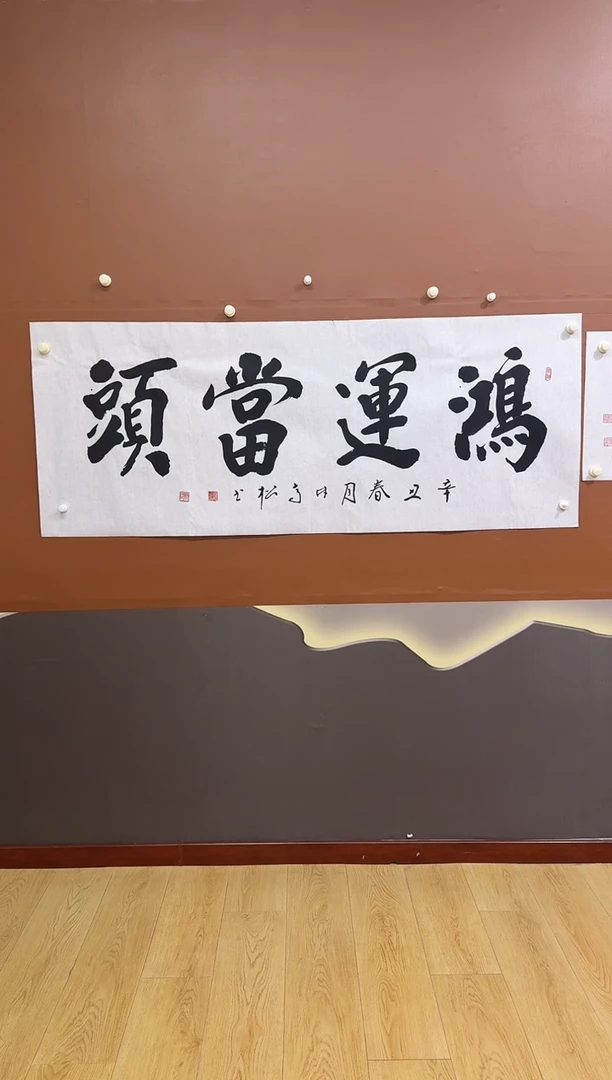 鴻運當頭
辛丑春月 松书